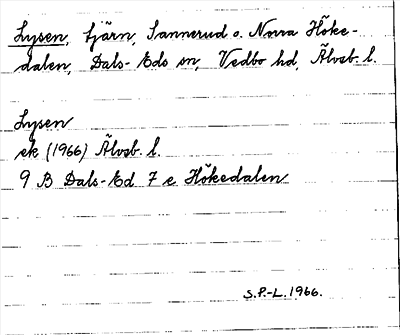 Lysen, tjärn, Sannerud o. Norra Höke-
dalen, Dals-Eds sn, Vedbo hd, Älvsb. l.
Lysen
ek (1966) Älvsb. l.
9 B Dals-Ed 7 e Hökedalen
S.P.-L. 1966.